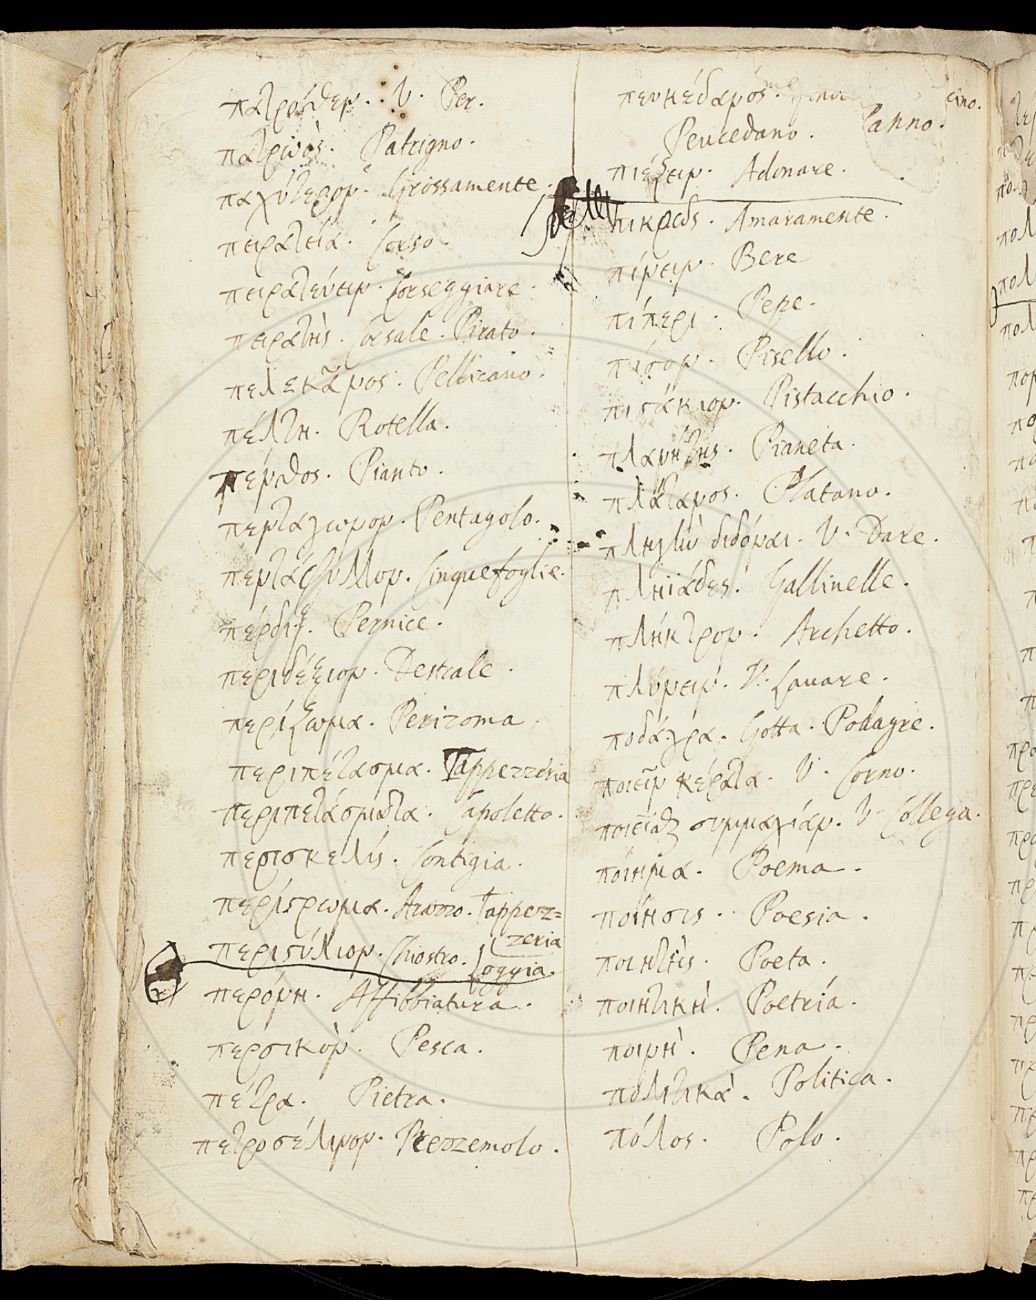 πατρόθεν. V. Per.
πατρωός. Patrigno.
παχύτερον. Grossamente.
πειρατεία. Corso
πειρατεύειν. Corseggiare.
πειρατής. Corsale. Pirato.
πελεκᾶνος. Pellicano.
πέλτη. Rotella.
πένθος. Pianto.
πεντάγωνον. Pentagolo.
πεντάφυλλον. Cinquefoglie.
πέρδιξ. Pernice.
περιδέξιον. Destrale.
περίζωμα. Perizoma
περιπέτασμα. Tappezzeria
περιπετάσματα. Capoletto.
περισκελίς. Contigia.
περίστρωμα. Arazzo. Tappez=
zeria
περιστύλιον. Chiostro. Loggia.
περόνη. Affibbiatura.
περσικόν. Pesca.
πέτρα. Pietra.
πετροσέλινον. Prezzemolo.
πευκέδανος.
Peucedano.
πιέζειν. Adonare.
πικρῶς. Amaramente.
πίνειν. Bere
πίπερι. Pepe.
πίσον. Pisello.
πιστάκιον. Pistacchio.
πλανήτης. Pianeta.
πλάτανος. Platano.
πληγὴν διδόναι. V. Dare.
πληϊάδες. Gallinelle.
πλῆκτρον. Archetto.
πλύνειν. V. Lavare.
ποδάγρα. Gotta. Podagre.
ποιεῖν κέρατα. V. Corno.
ποιεῖσθαι συμμαχίαν. V. Collega.
ποίημα. Poema.
ποίησις. Poesia.
ποιητής. Poeta.
ποιητική. Poetría.
ποινή. Pena.
πολιτικά. Politica.
πόλος. Polo.